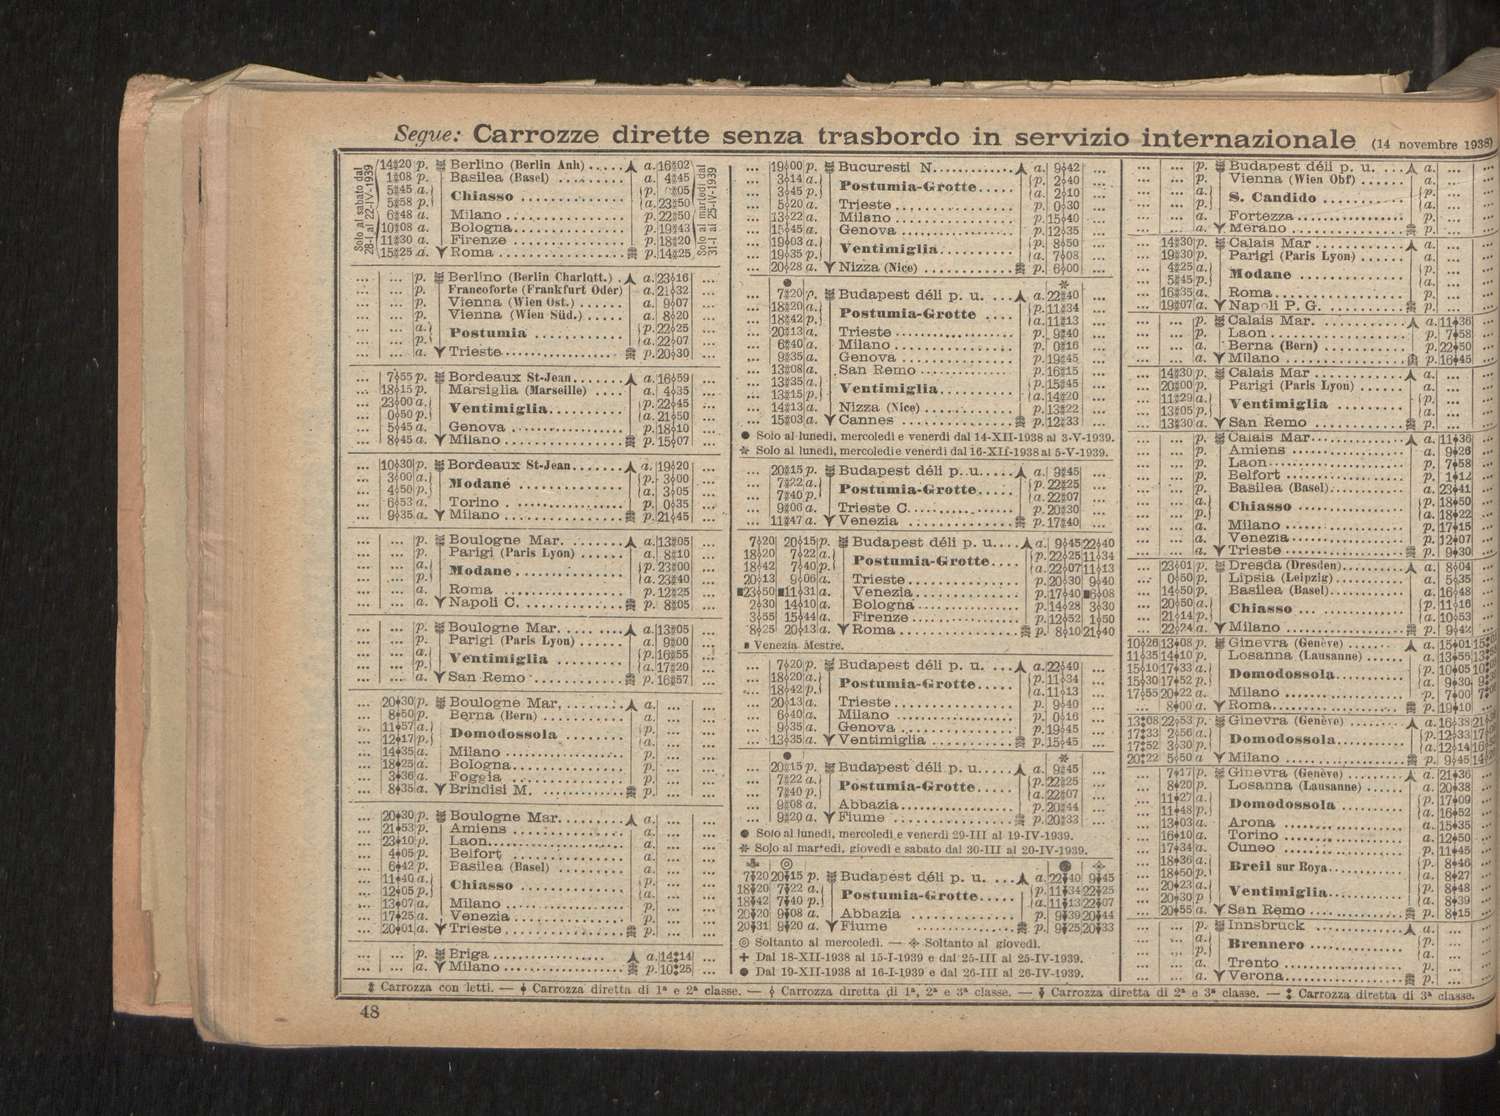 Segue: Carrozze dirette senza trasbordo in servizio internazionale (14 novembre 1938)
Solo al sabato dal 28-I al 22-IV-1939
Solo al martedì dal 31-I al 25-IV-1939
14 20 p. Berlino (Berlin Anh) ..... a. 16 02
1 08 p. Basilea (Basel) ......... a. 4 45
5 45 a. Chiasso ............ p.
5 58 p. a. 23 50
6 48 a. Milano ............ p. 22 50
10 08 a. Bologna ............ p. 19 43
11 30 a. Firenze ............ p. 18 20
15 25 a. Roma ............ p. 14 25
... ... p. Berlino (Berlin Charlott.) . a. 23 16 ...
... ... p. Francoforte (Frankfurt Oder) a. 21 32 ...
... ... p. Vienna (Wien Ost.) ...... a. 9 07 ...
... ... p. Vienna (Wien Süd.) ..... a. 8 20 ...
... ... a. Postumia ............ p. 22 25 ...
... ... p. a. 22 07 ...
... ... a. Trieste ............ p. 20 30 ...
... 7 55 p. Bordeaux St-Jean ....... a. 16 59 ...
... 18 15 p. Marsiglia (Marseille) .... a. 4 35 ...
... 23 00 a. Ventimiglia ............ p. 22 45 ...
... 0 50 p. a. 21 50 ...
... 5 45 a. Genova ............ p. 18 10 ...
... 8 45 a. Milano ............ p. 15 07 ...
... 10 30 p. Bordeaux St-Jean ....... a. 19 20 ...
... 3 00 a. Modane ............ p. 3 00 ...
... 4 50 p. a. 3 05 ...
... 6 53 a. Torino ............ p. 0 35 ...
... 9 35 a. Milano ............ p. 21 45 ...
... ... p. Boulogne Mar. ........ a. 13 05 ...
... ... p. Parigi (Paris Lyon) ...... a. 8 10 ...
... ... a. Modane ............ p. 23 00 ...
... ... p. a. 23 40 ...
... ... a. Roma ............ p. 12 25 ...
... ... a. Napoli C. ............ p. 8 05 ...
... ... p. Boulogne Mar. ........ a. 13 05 ...
... ... p. Parigi (Paris Lyon) ...... a. 9 00 ...
... ... a. Ventimiglia ............ p. 16 55 ...
... ... p. a. 17 20 ...
... ... a. San Remo ............ p. 16 57 ...
... 20 30 p. Boulogne Mar. ........ a. ... ...
... 8 50 p. Berna (Bern) ............ a. ... ...
... 11 57 a. Domodossola ........ p. ... ...
... 12 17 p. a. ... ...
... 14 35 a. Milano ............ p. ... ...
... 18 25 a. Bologna ............ p. ... ...
... 3 36 a. Foggia ............ p. ... ...
... 8 35 a. Brindisi M. ............ p. ... ...
... 20 30 p. Boulogne Mar. ........ a. ... ...
... 21 53 p. Amiens ............ a. ... ...
... 23 10 p. Laon ............ a. ... ...
... 4 05 p. Belfort ............ a. ... ...
... 6 42 p. Basilea (Basel) ......... a. ... ...
... 11 40 a. Chiasso ............ p. ... ...
... 12 05 p. a. ... ...
... 13 07 a. Milano ............ p. ... ...
... 17 25 a. Venezia ............ p. ... ...
... 20 01 a. Trieste ............ p. ... ...
... ... p. Briga ............ a. 14 14 ...
... ... a. Milano ............ p. 10 25 ...
... 19 00 p. Bucuresti N. ............ a. 9 42 ...
... 3 14 a. Postumia-Grotte ..... p. 2 40 ...
... 3 45 p. a. 2 10 ...
... 5 20 a. Trieste ............ p. 0 30 ...
... 13 22 a. Milano ............ p. 15 40 ...
... 15 45 a. Genova ............ p. 12 35 ...
... 19 03 a. Ventimiglia ............ p. 8 50 ...
... 19 35 p. a. 7 08 ...
... 20 28 a. Nizza (Nice) ............ p. 6 00 ...
● *
... 7 20 p. Budapest déli p. u. .... a. 22 40 ...
... 18 20 a. Postumia-Grotte .... p. 11 34 ...
... 18 42 p. a. 11 13 ...
... 20 13 a. Trieste ............ p. 9 40 ...
... 6 40 a. Milano ............ p. 0 16 ...
... 9 35 a. Genova ............ p. 19 45 ...
... 13 08 a. San Remo ............ p. 16 15 ...
... 13 35 a. Ventimiglia ............ p. 15 45 ...
... 13 15 p. a. 14 20 ...
... 14 13 a. Nizza (Nice) ............ p. 13 22 ...
... 15 03 a. Cannes ............ p. 12 33 ...
● Solo al lunedì, mercoledì e venerdì dal 14-XII-1938 al 3-V-1939.
* Solo al lunedì, mercoledì e venerdì dal 16-XII-1938 al 5-V-1939.
... 20 15 p. Budapest déli p. u. ..... a. 9 45 ...
... 7 22 a. Postumia-Grotte ..... p. 22 25 ...
... 7 40 p. a. 22 07 ...
... 9 06 a. Trieste C. ............ p. 20 30 ...
... 11 47 a. Venezia ............ p. 17 40 ...
7 20 20 15 p. Budapest déli p. u. .... a. 9 45 22 40
18 20 7 22 a. Postumia-Grotte ..... p. 22 25 11 34
18 42 7 40 p. a. 22 07 11 13
20 13 9 06 a. Trieste ............ p. 20 30 9 40
■23 50 ■11 31 a. Venezia ............ p. 17 40 ■6 08
2 30 14 10 a. Bologna ............ p. 14 28 3 30
3 55 15 44 a. Firenze ............ p. 12 52 1 50
8 25 20 13 a. Roma ............ p. 8 10 21 40
■ Venezia Mestre.
... 7 20 p. Budapest déli p. u. .... a. 22 40 ...
... 18 20 a. Postumia-Grotte ..... p. 11 34 ...
... 18 42 p. a. 11 13 ...
... 20 13 a. Trieste ............ p. 9 40 ...
... 6 40 a. Milano ............ p. 0 16 ...
... 9 35 a. Genova ............ p. 19 45 ...
... 13 35 a. Ventimiglia ............ p. 15 45 ...
● *
... 20 15 p. Budapest déli p. u. ..... a. 9 45 ...
... 7 22 a. Postumia-Grotte ..... p. 22 25 ...
... 7 40 p. a. 22 07 ...
... 9 08 a. Abbazia ............ p. 20 44 ...
... 9 20 a. Fiume ............ p. 20 33 ...
● Solo al lunedì, mercoledì e venerdì 29-III al 19-IV-1939.
* Solo al martedì, giovedì e sabato dal 30-III al 20-IV-1939.
7 20 20 15 p. Budapest déli p. u. ... a. 22 40 9 45
18 20 7 22 a. Postumia-Grotte ..... p. 11 34 22 25
18 42 7 40 p. a. 11 13 22 07
20 20 9 08 a. Abbazia ............ p. 9 39 20 44
20 31 9 20 a. Fiume ............ p. 9 25 20 33
◎ Soltanto al mercoledì. — ✧ Soltanto al giovedì.
+ Dal 18-XII-1938 al 15-I-1939 e dal 25-III al 25-IV-1939.
● Dal 19-XII-1938 al 16-I-1939 e dal 26-III al 26-IV-1939.
... ... p. Budapest déli p. u. ... a. ... ...
... ... p. Vienna (Wien Obf) ...... a. ... ...
... ... a. S. Candido ............ p. ... ...
... ... p. a. ... ...
... ... a. Fortezza ............ p. ... ...
... ... a. Merano ............ p. ... ...
... 14 30 p. Calais Mar ............ a. ... ...
... 19 30 p. Parigi (Paris Lyon) ...... a. ... ...
... 4 25 a. Modane ............ p. ... ...
... 5 45 p. a. ... ...
... 16 35 a. Roma ............ p. ... ...
... 19 07 a. Napoli P. G. ............ p. ... ...
... ... p. Calais Mar. ............ a. 11 36 ...
... ... p. Laon ............ a. 7 58 ...
... ... a. Berna (Bern) ............ p. 22 50 ...
... ... a. Milano ............ p. 16 45 ...
... 14 30 p. Calais Mar ............ a. ... ...
... 20 00 p. Parigi (Paris Lyon) ...... a. ... ...
... 11 29 a. Ventimiglia ............ p. ... ...
... 13 05 p. a. ... ...
... 13 30 a. San Remo ............ p. ... ...
... ... p. Calais Mar ............ a. 11 36 ...
... ... p. Amiens ............ a. 9 26 ...
... ... p. Laon ............ a. 7 58 ...
... ... p. Belfort ............ a. 1 12 ...
... ... p. Basilea (Basel) ......... a. 23 41 ...
... ... a. Chiasso ............ p. 18 50 ...
... ... p. a. 18 22 ...
... ... a. Milano ............ p. 17 15 ...
... ... a. Venezia ............ p. 12 07 ...
... ... a. Trieste ............ p. 9 30 ...
... 23 01 p. Dresda (Dresden) ....... a. 8 04 ...
... 0 50 p. Lipsia (Leipzig) ......... a. 5 35 ...
... 14 50 p. Basilea (Basel) ......... a. 16 48 ...
... 20 50 a. Chiasso ............ p. 11 16 ...
... 21 14 p. a. 10 53 ...
... 22 24 a. Milano ............ p. 9 42 ...
10 26 13 08 p. Ginevra (Genève) ........ a. 15 01
11 35 14 10 p. Losanna (Lausanne) ...... a. 13 55
15 10 17 33 a. Domodossola ........ p. 10 05
15 30 17 52 p. a. 9 30
17 55 20 22 a. Milano ............ p. 7 00
... 8 00 a. Roma ............ p. 19 10
13 08 22 53 p. Ginevra (Genève) ........ a. 16 38
17 33 2 56 a. Domodossola ........ p. 12 33
17 52 3 30 p. a. 12 14
20 22 5 50 a. Milano ............ p. 9 45
... 7 17 p. Ginevra (Genève) ........ a. 21 36 ...
... 8 20 p. Losanna (Lausanne) ...... a. 20 38 ...
... 11 27 a. Domodossola ........ p. 17 09 ...
... 11 48 p. a. 16 52 ...
... 13 03 a. Arona ............ p. 15 35 ...
... 16 10 a. Torino ............ p. 12 50 ...
... 17 34 a. Cuneo ............ p. 11 45 ...
... 18 36 a. Breil sur Roya ........ p. 8 46 ...
... 18 50 p. a. 8 27 ...
... 20 23 a. Ventimiglia ............ p. 8 48 ...
... 20 30 p. a. 8 39 ...
... 20 55 a. San Remo ............ p. 8 15 ...
... ... p. Innsbruck ............ a. ... ...
... ... a. Brennero ............ p. ... ...
... ... p. a. ... ...
... ... a. Trento ............ p. ... ...
... ... a. Verona ............ p. ... ...
Carrozza con letti. — Carrozza diretta di 1ª e 2ª classe. — Carrozza diretta di 1ª, 2ª e 3ª classe. — Carrozza diretta di 2ª e 3ª classe. — Carrozza diretta di 3ª classe.
48